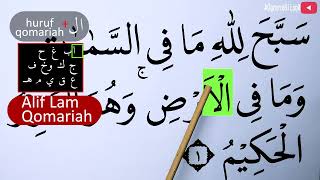 huruf + ال
qomariah
ب غ ح
ج ك و خ ف
ع ق ي م هـ
Alif Lam
Qomariah
سَبَّحَ لِلّٰهِ مَا فِى السَّمٰ
وَمَا فِى الْاَرْضِ ۚ وَهُوَ
الْحَكِيْمُ ١